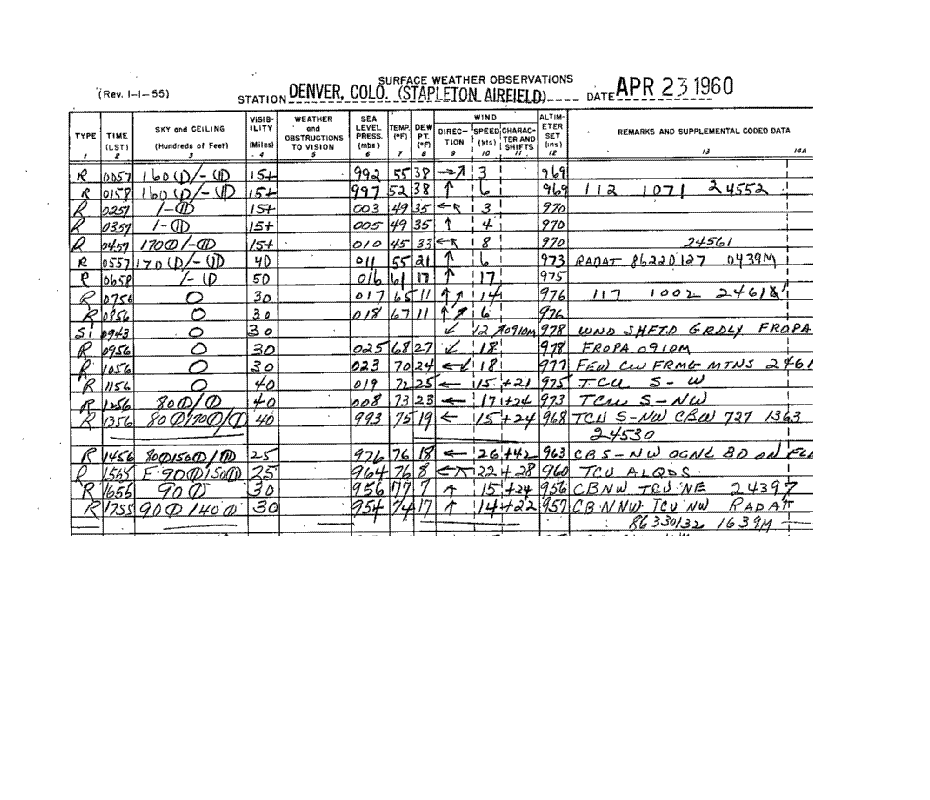 SURFACE WEATHER OBSERVATIONS
(Rev. 1-1-55) STATION DENVER, COLO. (STAPLETON AIRFIELD) DATE APR 23 1960
TYPE 1 TIME (LST) 2 SKY and CEILING (Hundreds of Feet) 3 VISIBILITY (Miles) 4 WEATHER and OBSTRUCTIONS TO VISION 5 SEA LEVEL PRESS. (mbs) 6 TEMP. (°F) 7 DEW PT. (°F) 8 WIND DIRECTION 9 SPEED (kts) 10 CHARACTER AND SHIFTS 11 ALTIMETER SET (ins) 12 REMARKS AND SUPPLEMENTAL CODED DATA 13
R 0057 160⦶/-⦷ 15+ 992 55 38 →↗ 3 969
R 0158 160⦶/-⦷ 15+ 997 52 38 ↑ 6 969 112 1071 24552
R 0257 /-⦷ 15+ 003 49 35 ←↖ 3 970
R 0357 /-⦷ 15+ 005 49 35 ↑ 4 970
R 0457 170⦶/-⦷ 15+ 010 45 33 ←↖ 8 970 24561
R 0557 170⦶/-⦷ 40 011 55 21 ↑ 6 973 RADAT 86220127 0439M
R 0658 /-⦶ 50 016 61 17 ↑ 17 975
R 0756 ○ 30 017 65 11 ↑↗ 14 976 117 1002 24618
R 0856 ○ 30 018 67 11 ↑↗ 6 976
Si 0943 ○ 30 ↙ 12 ↗0910M 978 WND SHFTD GRDLY FROPA
R 0956 ○ 30 025 68 27 ↙ 18 978 FROPA 0910M
R 1056 ○ 30 023 70 24 ←↙ 18 977 FEW CU FRMG MTNS 2461
R 1156 ○ 40 019 72 25 ← 15 +21 975 TCU S-W
R 1256 80⦶/⦶ 40 008 73 23 ← 17 +24 973 TCU S-NW
R 1356 80⦶170⦶/⦶ 40 993 75 19 ← 15 +24 968 TCU S-NW CBW 727 1363
24530
R 1456 80⦶150⦶/⦷ 25 976 76 18 ← 26 +42 963 CB S-NW OGNL BD ON
R 1555 E90⦶150⦶ 25 964 76 8 ←↖ 22 +28 960 TCU ALQDS
R 1656 90⦶ 30 956 77 7 ↑ 15 +24 956 CBNW TCU NE 24397
R 1755 90⦶140⦶ 30 954 74 17 ↑ 14 +22 957 CB NNW TCU NW RADAT
86330132 1639M